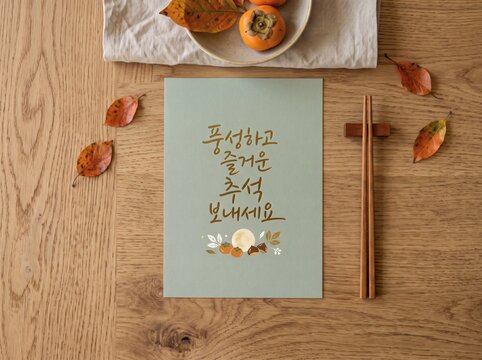 풍성하고
즐거운
추석
보내세요